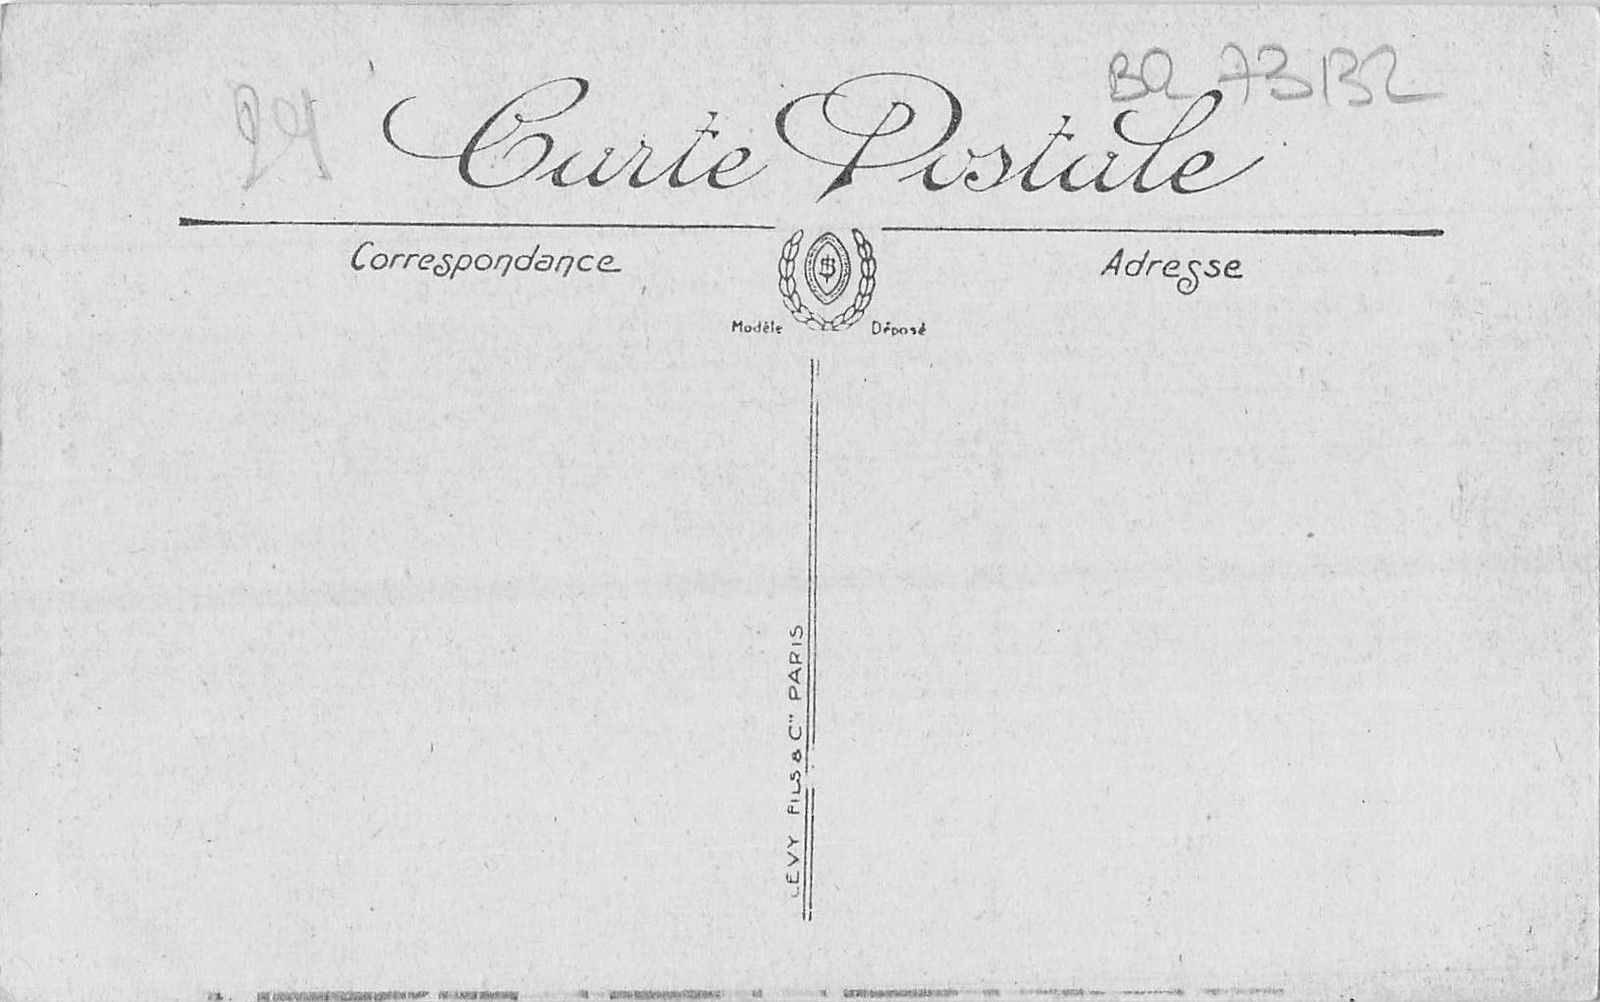 BR 73132
24
Carte Postale
Correspondance
Adresse
Modèle Déposé
LÉVY FILS & Cie PARIS